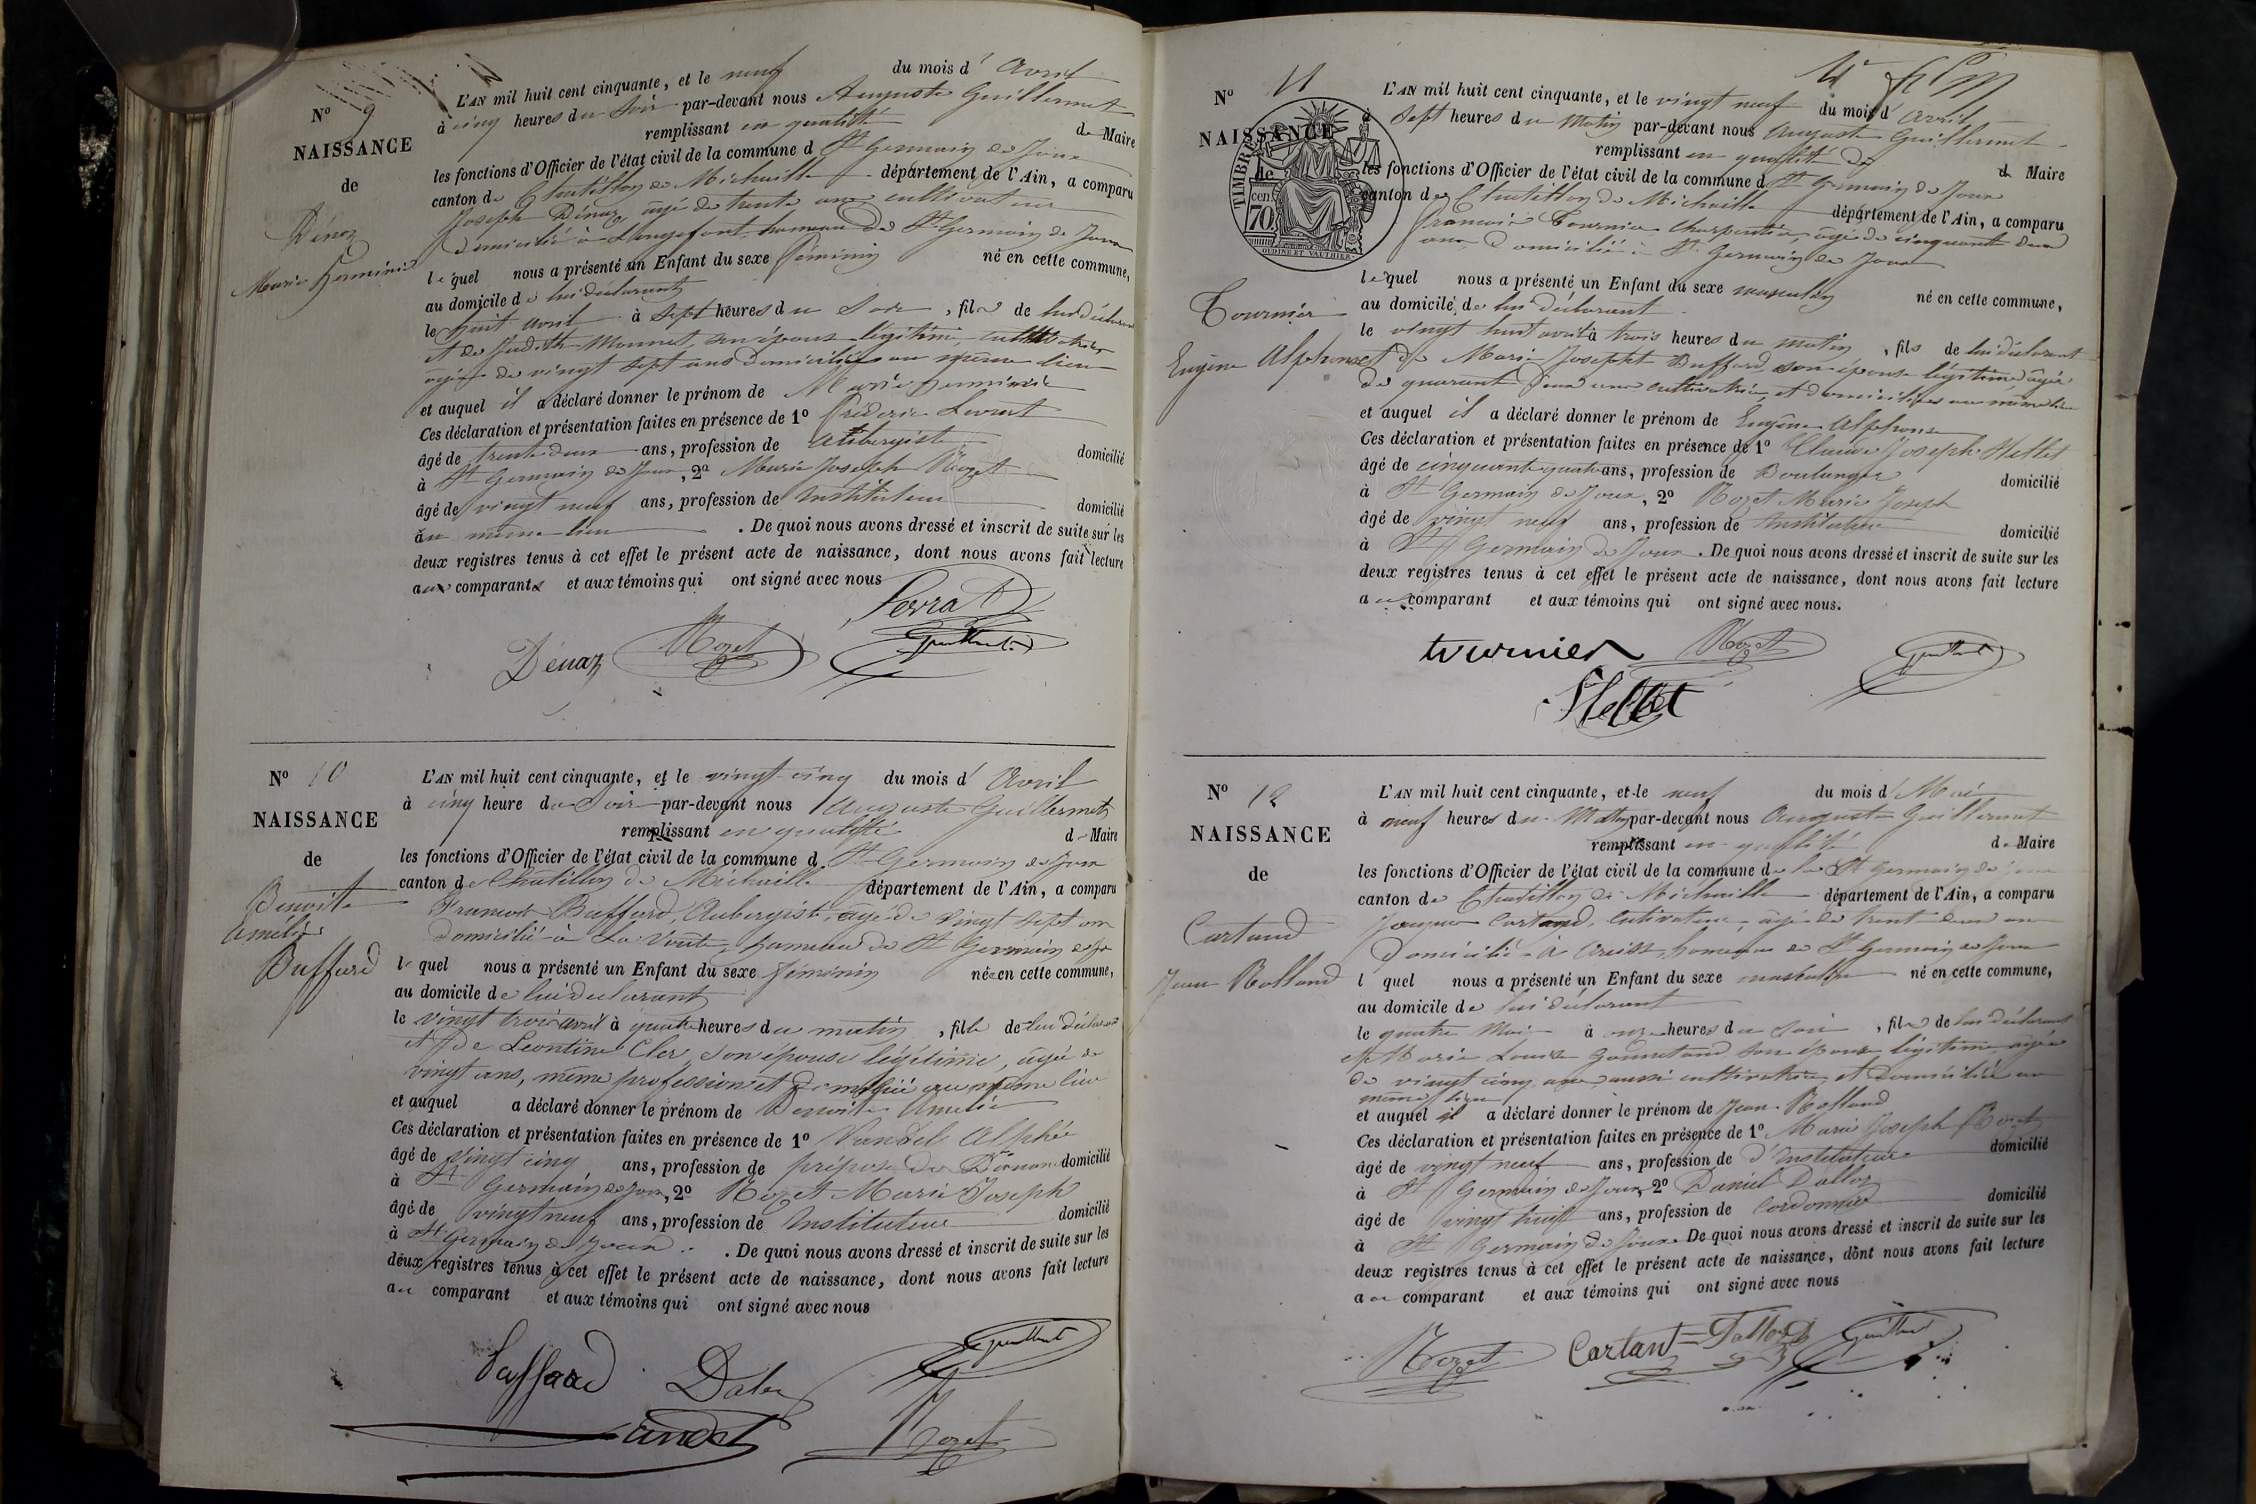 N° 9
NAISSANCE
de
Dénaz
Marie Herminie
L'AN mil huit cent cinquante, et le neuf du mois d' Avril
à cinq heures du Soir par-devant nous Auguste Guillermet
remplissant en qualité de Maire
les fonctions d'Officier de l'état civil de la commune d St Germain de Joux
canton de Chatillon de Michaille département de l'Ain, a comparu
Joseph Dénaz âgé de trente ans cultivateur
domicilié à Longefont hameau de St Germain de Joux
lequel nous a présenté un Enfant du sexe féminin né en cette commune,
au domicile de lui déclarant
le huit avril à sept heures du Soir, fils de lui déclarant
et de Judith Monnet, son épouse légitime, cultivatrice
âgée de vingt sept ans domiciliée au même lieu
et auquel il a déclaré donner le prénom de Marie Herminie
Ces déclaration et présentation faites en présence de 1° Fréderic Levrat
âgé de trente deux ans, profession de aubergiste domicilié
à St Germain de Joux, 2° Marie Joseph Rozet
âgé de vingt neuf ans, profession de Instituteur domicilié
au même lieu. De quoi nous avons dressé et inscrit de suite sur les
deux registres tenus à cet effet le présent acte de naissance, dont nous avons fait lecture
aux comparants et aux témoins qui ont signé avec nous
Dénaz Rozet Levrat
Guillermet
N° 10
NAISSANCE
de
Benoite
Amélie
Buffard
L'AN mil huit cent cinquante, et le vingt-cinq du mois d' Avril
à cinq heure du Soir par-devant nous Auguste Guillermet
remplissant en qualité de Maire
les fonctions d'Officier de l'état civil de la commune d St Germain de Joux
canton de Chatillon de Michaille département de l'Ain, a comparu
François Buffard, Aubergiste, âgé de vingt sept ans
domicilié à La Voute, hameau de St Germain de Jo
lequel nous a présenté un Enfant du sexe féminin né en cette commune,
au domicile de lui déclarant
le vingt trois avril à quatre heures du matin, fille de lui déclarant
et de Leontine Cler, son épouse légitime, âgée de
vingt ans, même profession et domicilié au même lieu
et auquel a déclaré donner le prénom de Benoite Amélie
Ces déclaration et présentation faites en présence de 1° Vandel Alphée
âgé de vingt cinq ans, profession de préposé de Douane domicilié
à St Germain de Joux, 2° Rozet Marie Joseph
âgé de vingt neuf ans, profession de Instituteur domicilié
à St Germain de Joux. De quoi nous avons dressé et inscrit de suite sur les
deux registres tenus à cet effet le présent acte de naissance, dont nous avons fait lecture
au comparant et aux témoins qui ont signé avec nous
Buffard Guillermet
Vandel Rozet
N° 11
NAISSANCE
TIMBRE
de
cen.
70
OUDINE ET VAUTHIER
Tournier
Eugène Alphonse
L'AN mil huit cent cinquante, et le vingt neuf du mois d' Avril
à sept heures du Matin par-devant nous Auguste Guillermet
remplissant en qualité de Maire
les fonctions d'Officier de l'état civil de la commune d St Germain de Joux
canton de Chatillon de Michaille département de l'Ain, a comparu
François Tournier Charpentier, âgé de cinquante deux
ans domicilié à St Germain de Joux
lequel nous a présenté un Enfant du sexe masculin né en cette commune,
au domicile de lui déclarant
le vingt huit avril à trois heures du matin, fils de lui déclarant
et de Marie Josephte Buffard, son épouse légitime âgée
de quarante deux ans cultivatrice, et domiciliée au même lieu
et auquel il a déclaré donner le prénom de Eugène Alphonse
Ces déclaration et présentation faites en présence de 1° Claude Joseph Hellet
âgé de cinquante quatre ans, profession de Boulanger domicilié
à St Germain de Joux, 2° Rozet Marie Joseph
âgé de vingt neuf ans, profession de Instituteur domicilié
à St Germain de Joux. De quoi nous avons dressé et inscrit de suite sur les
deux registres tenus à cet effet le présent acte de naissance, dont nous avons fait lecture
au comparant et aux témoins qui ont signé avec nous.
tournier Rozet Guillermet
Hellet
N° 12
NAISSANCE
de
Cartand
Jean Rolland
L'AN mil huit cent cinquante, et le neuf du mois d' Mai
à neuf heures du Matin par-devant nous Auguste Guillermet
remplissant en qualité de Maire
les fonctions d'Officier de l'état civil de la commune de St Germain de Joux
canton de Chatillon de Michaille département de l'Ain, a comparu
Cartand, Cultivateur, âgé de trente deux ans
domicilié à hameau de St Germain de Joux
l quel nous a présenté un Enfant du sexe masculin né en cette commune,
au domicile de lui déclarant
le quatre Mai à onze heures du soir, fils de lui déclarant
et Marie Louise son épouse légitime âgée
de vingt cinq ans aussi cultivatrice et domiciliée au
même lieu
et auquel il a déclaré donner le prénom de Jean Rolland
Ces déclaration et présentation faites en présence de 1° Marie Joseph Rozet
âgé de vingt neuf ans, profession de d'Instituteur domicilié
à St Germain de Joux, 2° Daniel Dalloz
âgé de vingt huit ans, profession de Cordonnier domicilié
à St Germain de Joux. De quoi nous avons dressé et inscrit de suite sur les
deux registres tenus à cet effet le présent acte de naissance, dont nous avons fait lecture
au comparant et aux témoins qui ont signé avec nous
Rozet Cartant Dalloz Guillermet